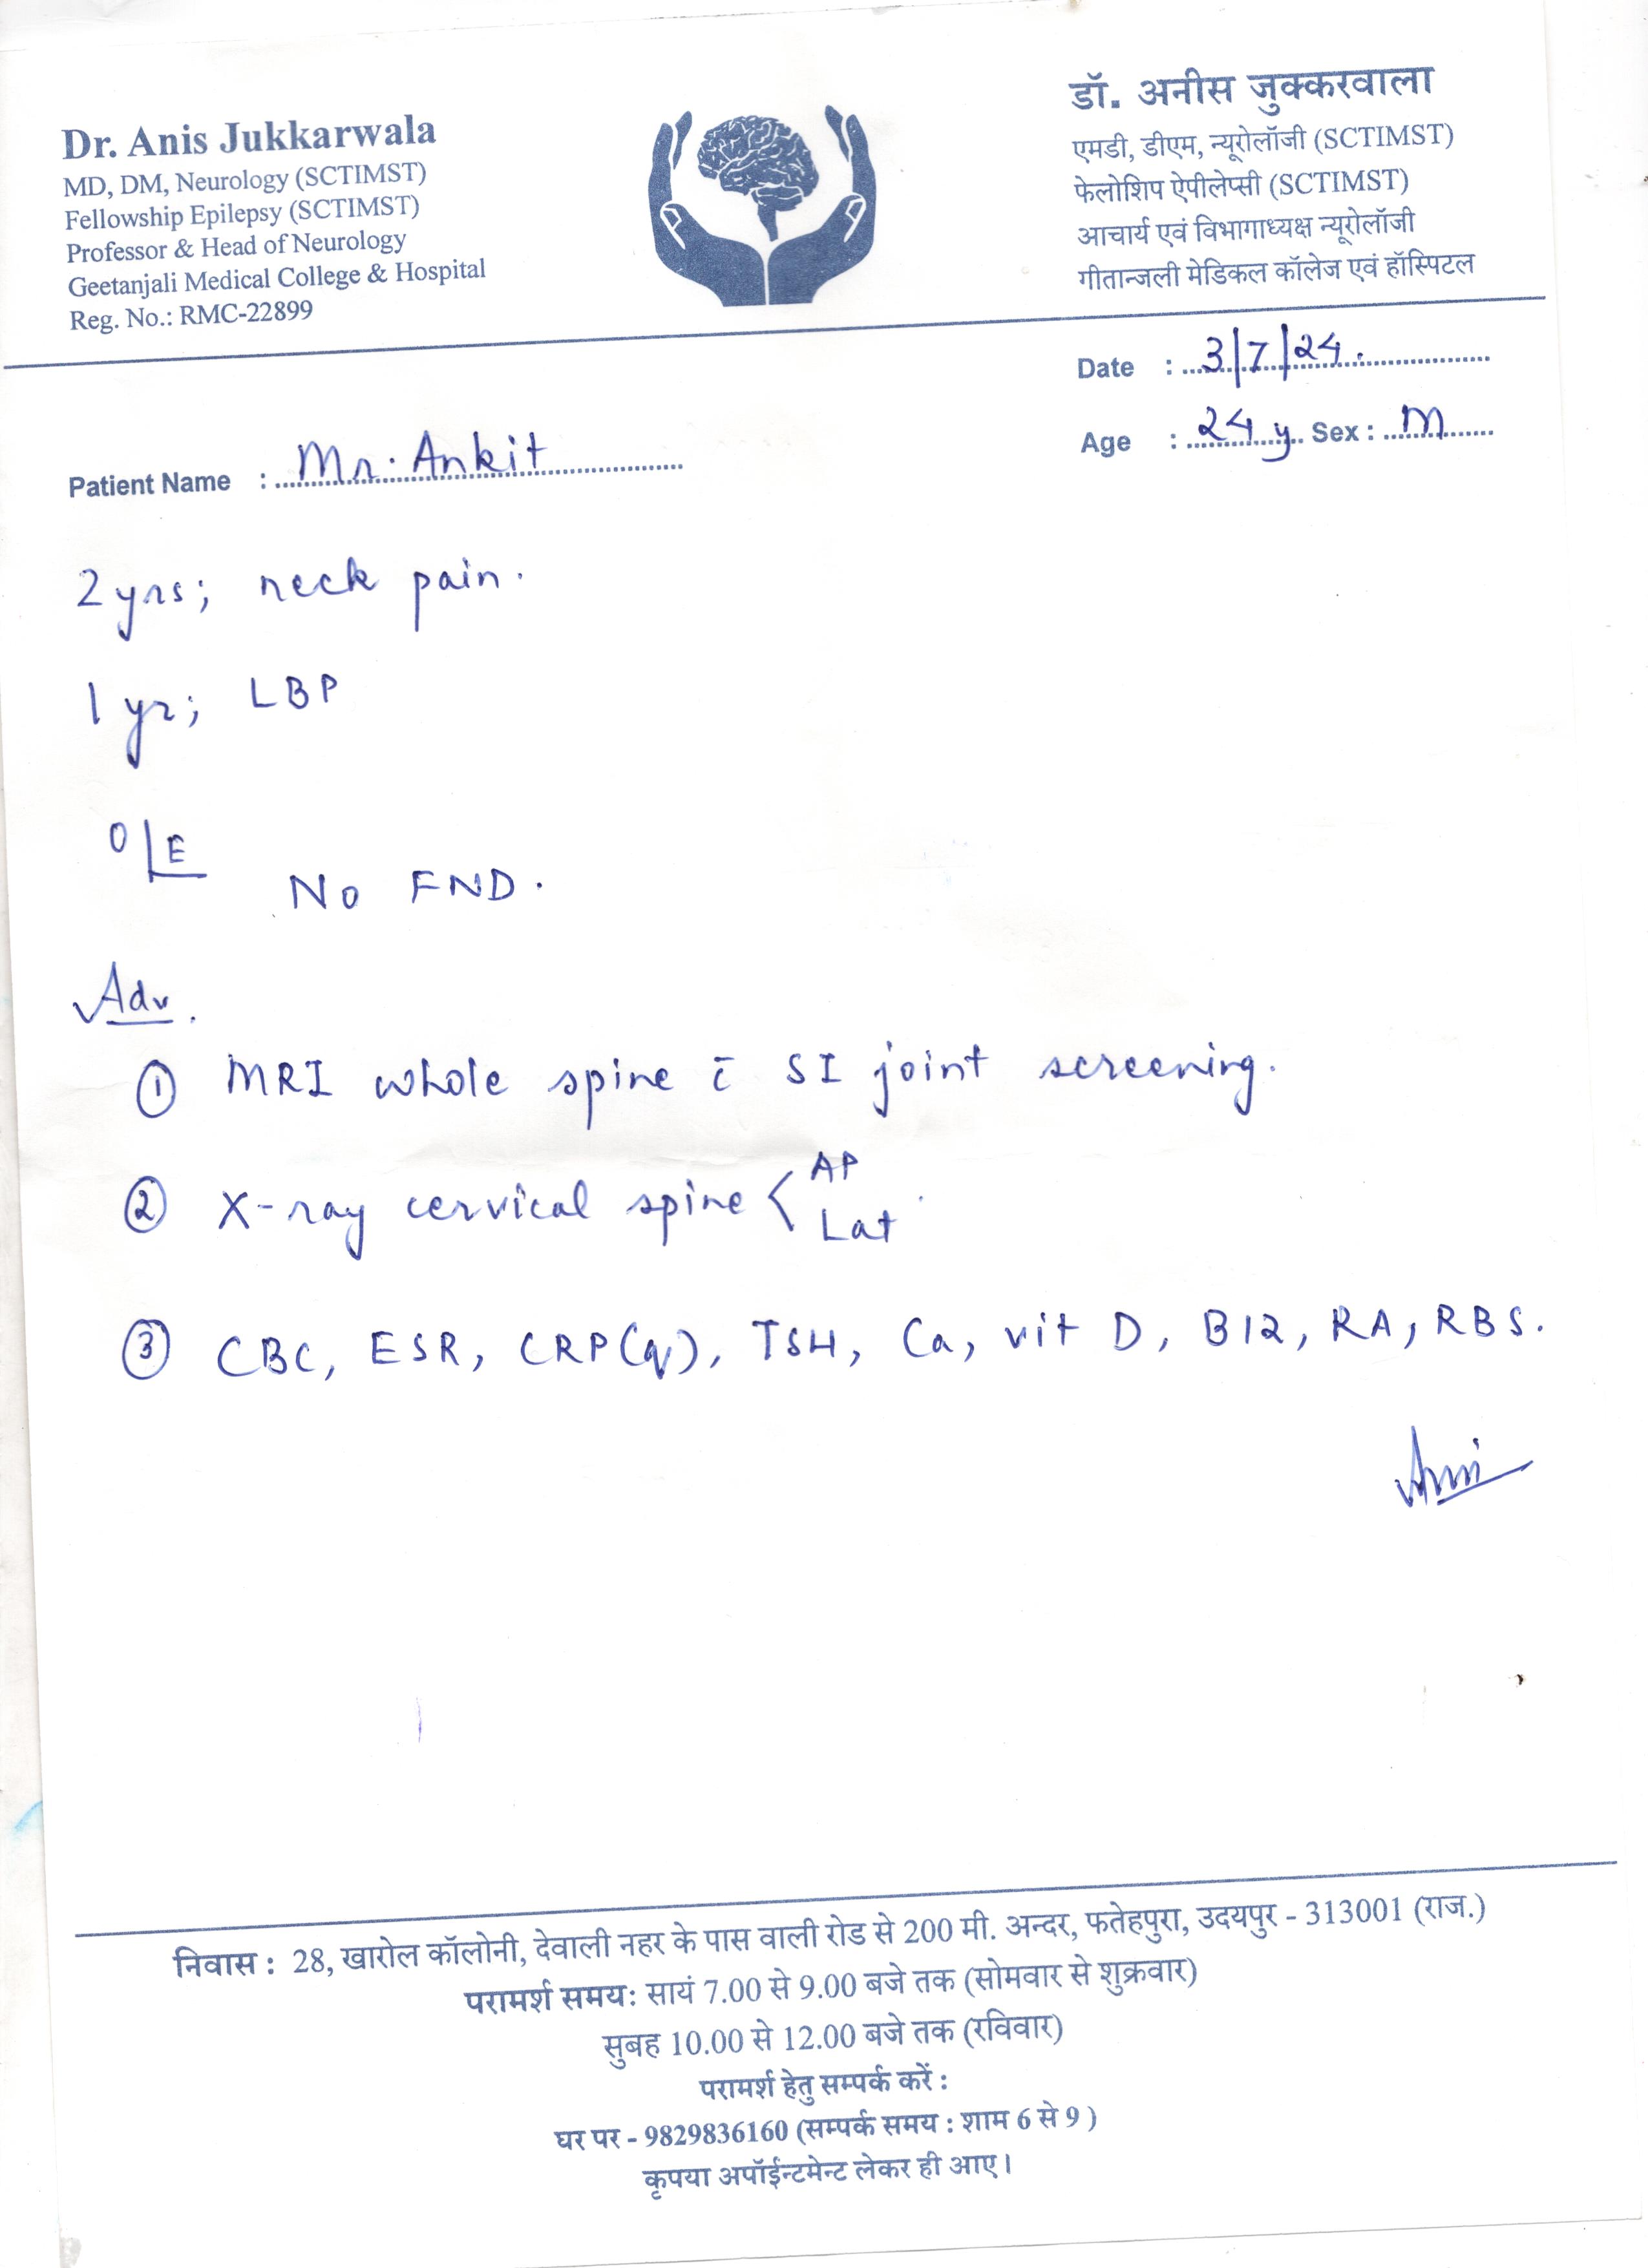 Dr. Anis Jukkarwala
MD, DM, Neurology (SCTIMST)
Fellowship Epilepsy (SCTIMST)
Professor & Head of Neurology
Geetanjali Medical College & Hospital
Reg. No.: RMC-22899
डॉ. अनीस जुक्करवाला
एमडी, डीएम, न्यूरोलॉजी (SCTIMST)
फेलोशिप ऐपीलेप्सी (SCTIMST)
आचार्य एवं विभागाध्यक्ष न्यूरोलॉजी
गीतान्जली मेडिकल कॉलेज एवं हॉस्पिटल
Date : 3/7/24.
Age : 24 y Sex : M
Patient Name : Mr. Ankit
2 yrs; neck pain.
1 yr; LBP
O/E
No FND.
Adv.
① MRI whole spine c̄ SI joint screening.
② X-ray cervical spine < AP
Lat
③ CBC, ESR, CRP(q), TSH, Ca, vit D, B12, RA, RBS.
Anis
निवास : 28, खारोल कॉलोनी, देवाली नहर के पास वाली रोड से 200 मी. अन्दर, फतेहपुरा, उदयपुर - 313001 (राज.)
परामर्श समय: सायं 7.00 से 9.00 बजे तक (सोमवार से शुक्रवार)
सुबह 10.00 से 12.00 बजे तक (रविवार)
परामर्श हेतु सम्पर्क करें :
घर पर - 9829836160 (सम्पर्क समय : शाम 6 से 9 )
कृपया अपॉईन्टमेन्ट लेकर ही आए।